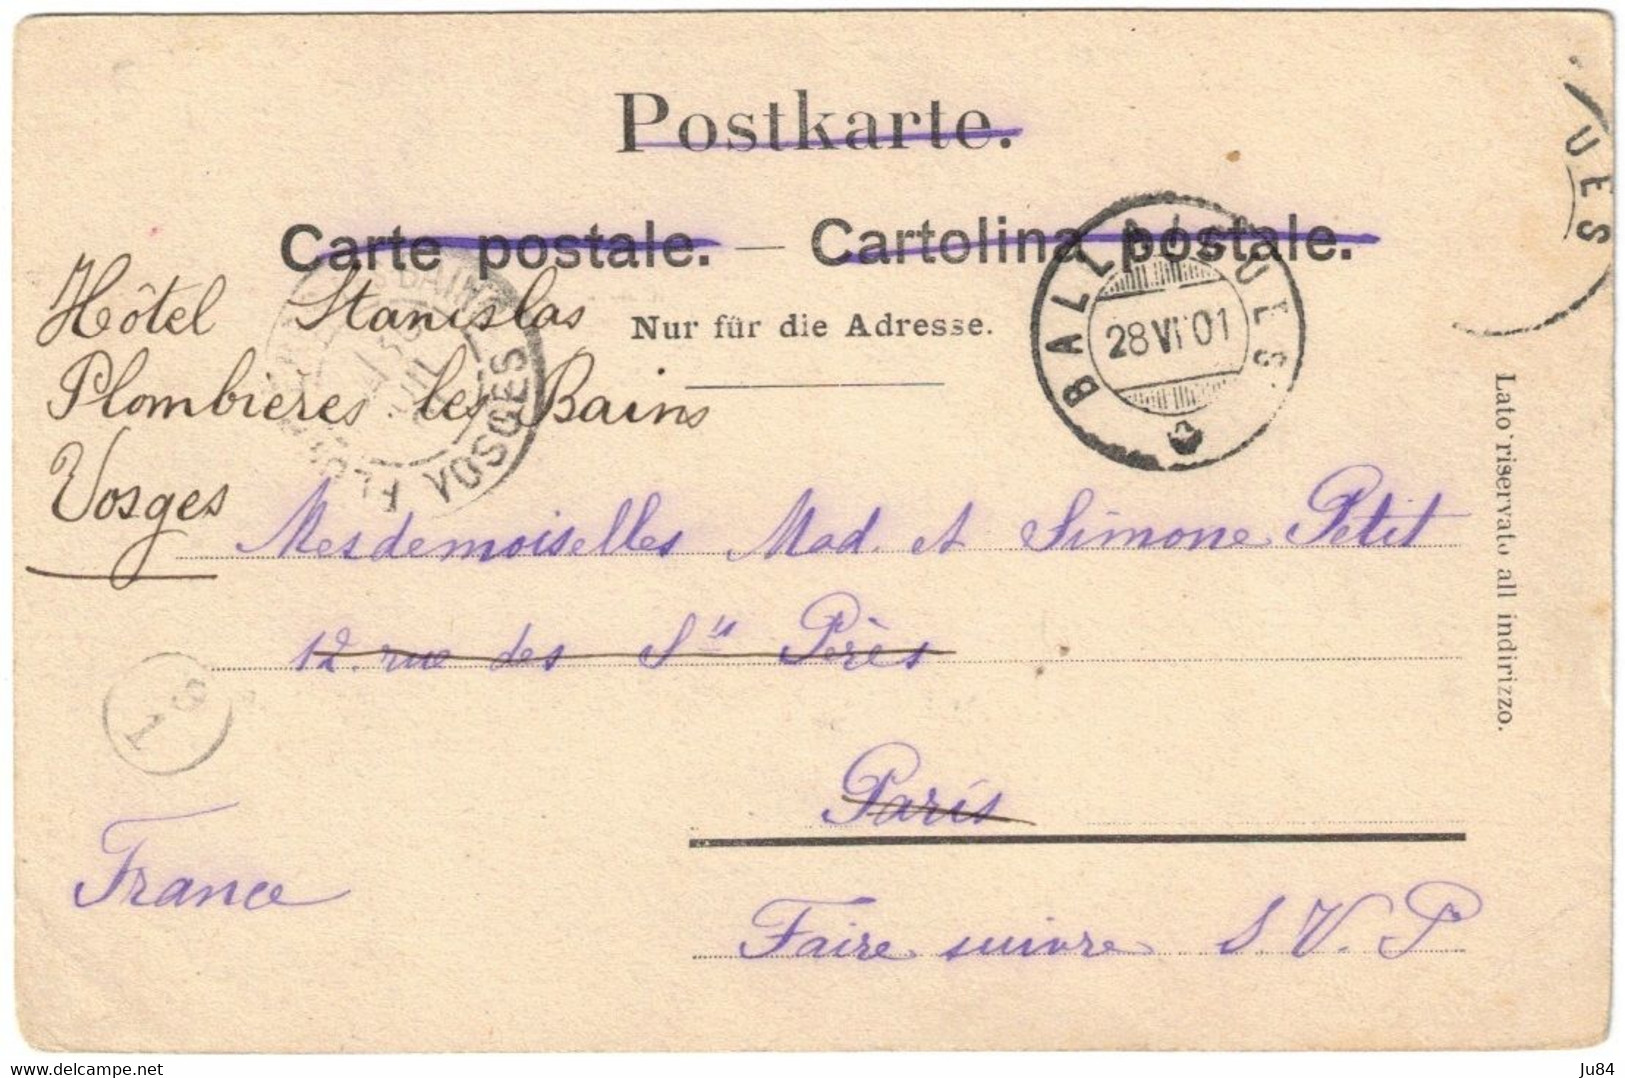 Postkarte.
Carte postale. — Cartolina postale.
Nur für die Adresse.
BALLAIGUES
28 VI 01
UES
BAINS
VOSGES
Hôtel Stanislas
Plombières les Bains
Vosges
Mesdemoiselles Mad. et Simone Petit
12. rue des Sts Pères
Paris
France
Faire suivre S. V. P
Lato riservato all indirizzo.
1
Ju84